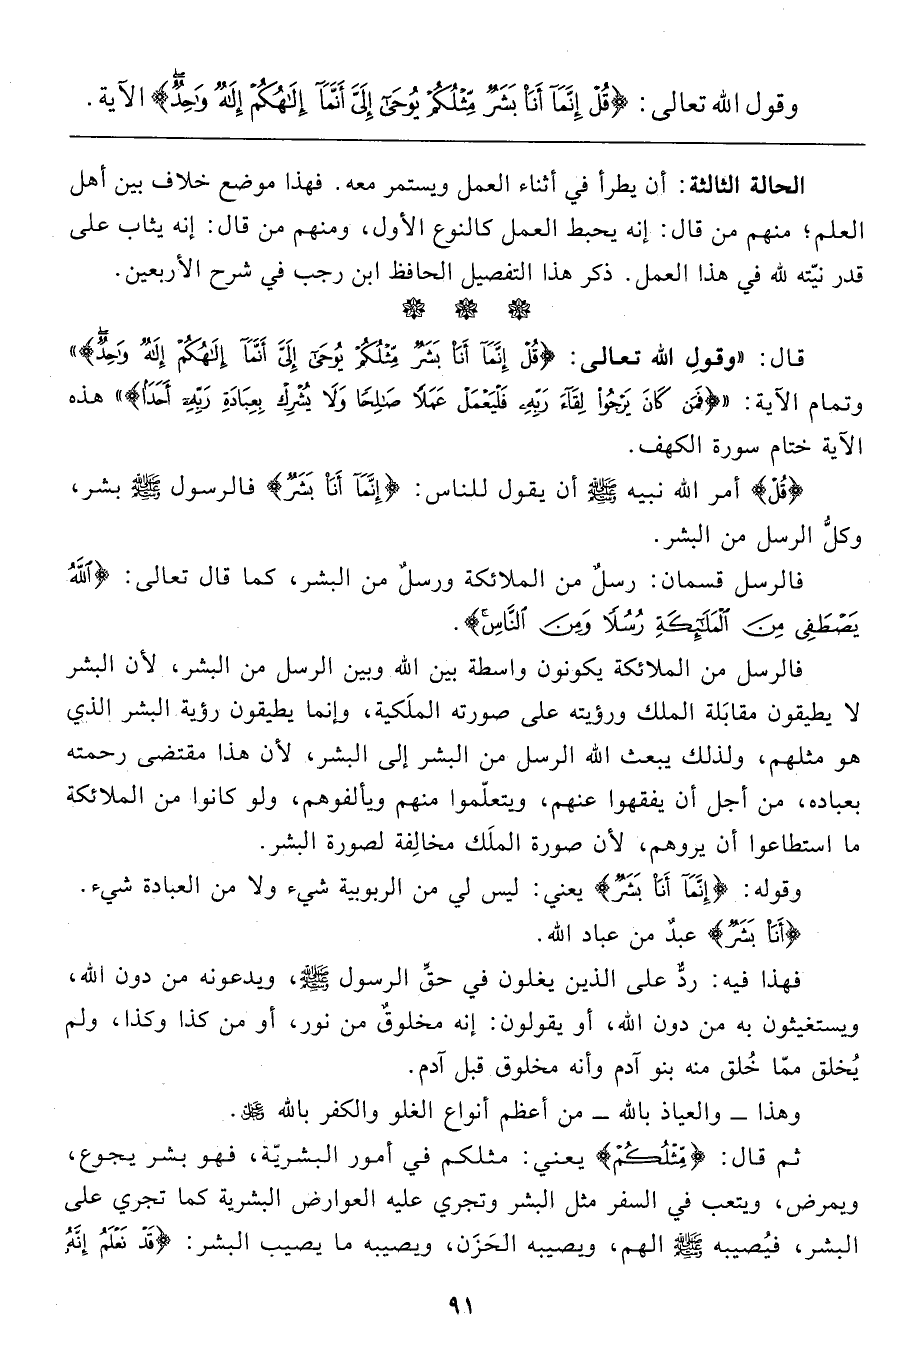 وقول الله تعالى: ﴿قُلْ إِنَّمَآ أَنَا۠ بَشَرٌ مِّثْلُكُمْ يُوحَىٰٓ إِلَىَّ أَنَّمَآ إِلَـٰهُكُمْ إِلَـٰهٌ وَٰحِدٌۖ﴾ الآية.
الحالة الثالثة: أن يطرأ في أثناء العمل ويستمر معه. فهذا موضع خلاف بين أهل
العلم؛ منهم من قال: إنه يحبط العمل كالنوع الأول، ومنهم من قال: إنه يثاب على
قدر نيّته لله في هذا العمل. ذكر هذا التفصيل الحافظ ابن رجب في شرح الأربعين.
قال: «وقولِ الله تعالى: ﴿قُلْ إِنَّمَآ أَنَا۠ بَشَرٌ مِّثْلُكُمْ يُوحَىٰٓ إِلَىَّ أَنَّمَآ إِلَـٰهُكُمْ إِلَـٰهٌ وَٰحِدٌۖ﴾»
وتمام الآية: «﴿فَمَن كَانَ يَرْجُوا۟ لِقَآءَ رَبِّهِۦ فَلْيَعْمَلْ عَمَلًا صَـٰلِحًا وَلَا يُشْرِكْ بِعِبَادَةِ رَبِّهِۦٓ أَحَدًۢا﴾» هذه
الآية ختام سورة الكهف.
﴿قُلْ﴾ أمر الله نبيه ﷺ أن يقول للناس: ﴿إِنَّمَآ أَنَا۠ بَشَرٌ﴾ فالرسول ﷺ بشر،
وكلُّ الرسل من البشر.
فالرسل قسمان: رسلٌ من الملائكة ورسلٌ من البشر، كما قال تعالى: ﴿ٱللَّهُ
يَصْطَفِى مِنَ ٱلْمَلَـٰٓئِكَةِ رُسُلًا وَمِنَ ٱلنَّاسِۚ﴾.
فالرسل من الملائكة يكونون واسطة بين الله وبين الرسل من البشر، لأن البشر
لا يطيقون مقابَلة الملك ورؤيته على صورته الملَكية، وإنما يطيقون رؤية البشر الذي
هو مثلهم، ولذلك يبعث الله الرسل من البشر إلى البشر، لأن هذا مقتضى رحمته
بعباده، من أجل أن يفقهوا عنهم، ويتعلّموا منهم ويألفوهم، ولو كانوا من الملائكة
ما استطاعوا أن يروهم، لأن صورة الملَك مخالِفة لصورة البشر.
وقوله: ﴿إِنَّمَآ أَنَا۠ بَشَرٌ﴾ يعني: ليس لي من الربوبية شيء ولا من العبادة شيء.
﴿أَنَا۠ بَشَرٌ﴾ عبدٌ من عباد الله.
فهذا فيه: ردٌّ على الذين يغلون في حقِّ الرسول ﷺ، ويدعونه من دون الله،
ويستغيثون به من دون الله، أو يقولون: إنه مخلوقٌ من نور، أو من كذا وكذا، ولم
يُخلق ممّا خُلق منه بنو آدم وأنه مخلوق قبل آدم.
وهذا ــ والعياذ بالله ــ من أعظم أنواع الغلو والكفر بالله ﷻ.
ثم قال: ﴿مِّثْلُكُمْ﴾ يعني: مثلكم في أمور البشريّة، فهو بشر يجوع،
ويمرض، ويتعب في السفر مثل البشر وتجري عليه العوارض البشرية كما تجري على
البشر، فيُصيبه ﷺ الهم، ويصيبه الحَزَن، ويصيبه ما يصيب البشر: ﴿قَدْ نَعْلَمُ إِنَّهُۥ
٩١